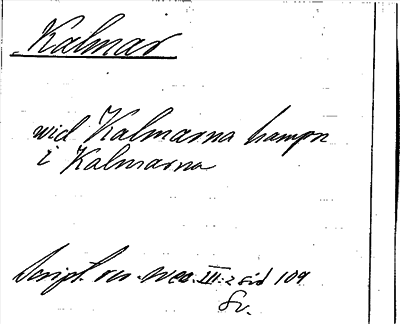 Kalmar
wid Kalmarna hampn
i Kalmarna
Script. rer. svec. III:2 sid 109
Sv.